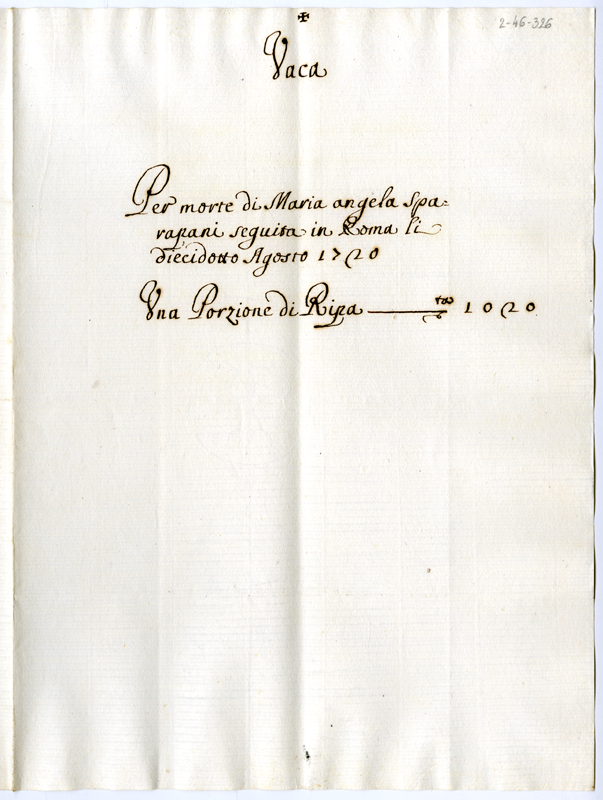 ✠
2-46-326
Vaca
Per morte di Maria angela Spa=
rapani seguita in Roma li
diecidotto Agosto 1720
Vna Porzione di Ripa —— 1020